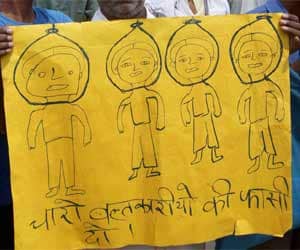 चारो बलत्कारीयो की फासी
दो।